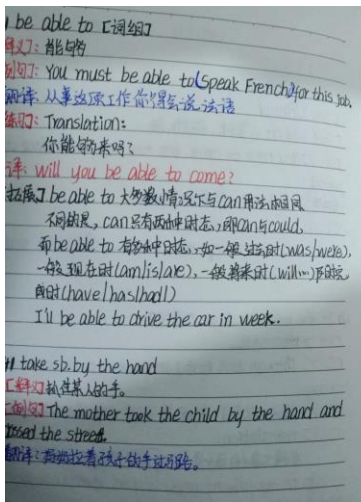 be able to [词组]
释义]: 能够
例句]: You must be able to (speak French) for this job,
翻译: 从事这项工作你得会说法语
练习]: Translation:
你能够来吗?
译: will you be able to come?
拓展] be able to 大多数情况下与can用法相同
不同的是, can只有两种时态,即can与could,
而be able to 有多种时态,如一般过去时(was/were),
一般现在时(am/is/are), 一般将来时(will…)
成时(have/has/had)
I'll be able to drive the car in week.
take sb. by the hand
[释义] 扯住某人的手。
[例句] The mother took the child by the hand and
ossed the street.
翻译: 妈妈拉着孩子的手过马路。